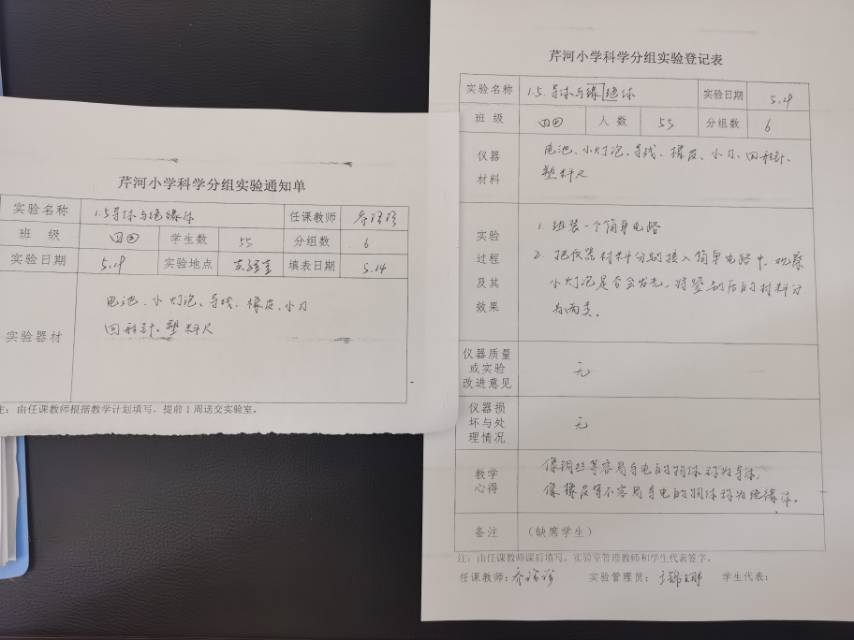 芹河小学科学分组实验通知单
实验名称 1.5导体与绝缘体 任课教师
班 级 四四 学生数 55 分组数 6
实验日期 5.19 实验地点 实验室 填表日期 5.14
实验器材 电池、小灯泡、导线、橡皮、小刀
回形针、塑料尺
注：由任课教师根据教学计划填写，提前1周送交实验室。
芹河小学科学分组实验登记表
实验名称 1.5.导体与绝缘体 实验日期 5.19
班 级 四四 人 数 55 分组数 6
仪器材料 电池、小灯泡、导线、橡皮、小刀、回形针、
塑料尺
实验过程及其效果 1. 组装一个简单电路
2. 把 材料分别接入简单电路中，观察
小灯泡是否会发光，将 后的材料分
为两类。
仪器质量或实验改进意见 无
仪器损坏与处理情况 无
教学心得 像铜丝等容易导电的物体称为导体，
像橡皮等不容易导电的物体称为绝缘体。
备注 （缺席学生）
注：由任课教师课后填写，实验室管理教师和学生代表签字。
任课教师： 实验管理员： 学生代表：